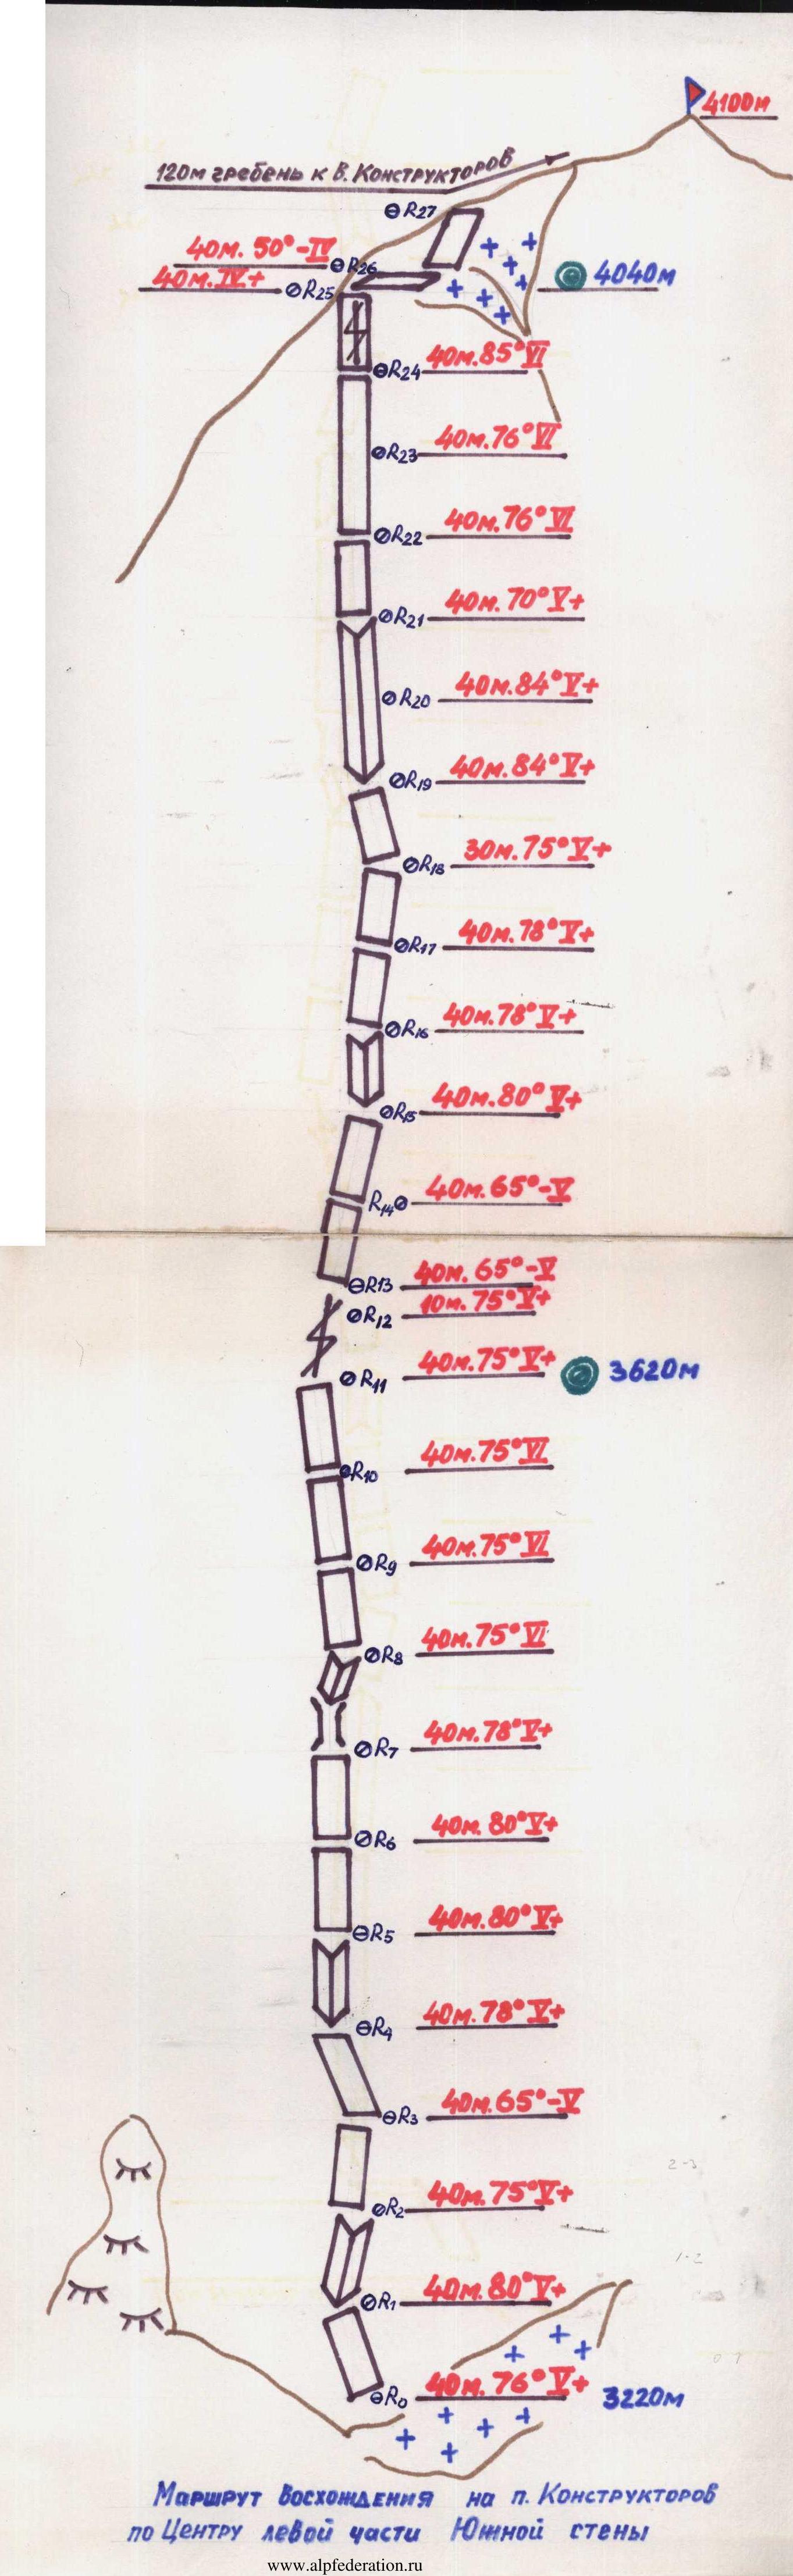 4100м
120м гребень к в. Конструкторов
R27
40м. 50°-IV
R26
40м. IV+
R25
4040м
R24 40м. 85° VI
R23 40м. 76° VI
R22 40м. 76° VI
R21 40м. 70° V+
R20 40м. 84° V+
R19 40м. 84° V+
R18 30м. 75° V+
R17 40м. 78° V+
R16 40м. 78° V+
R15 40м. 80° V+
R14 40м. 65°-V
R13 40м. 65°-V
R12 10м. 75° V+
R11 40м. 75° V+ 3620м
R10 40м. 75° VI
R9 40м. 75° VI
R8 40м. 75° VI
R7 40м. 78° V+
R6 40м. 80° V+
R5 40м. 80° V+
R4 40м. 78° V+
R3 40м. 65°-V
2-3
R2 40м. 75° V+
1-2
R1 40м. 80° V+
R0 40м. 76° V+ 3220м
Маршрут восхождения на п. Конструкторов
по Центру левой части Южной стены
www.alpfederation.ru